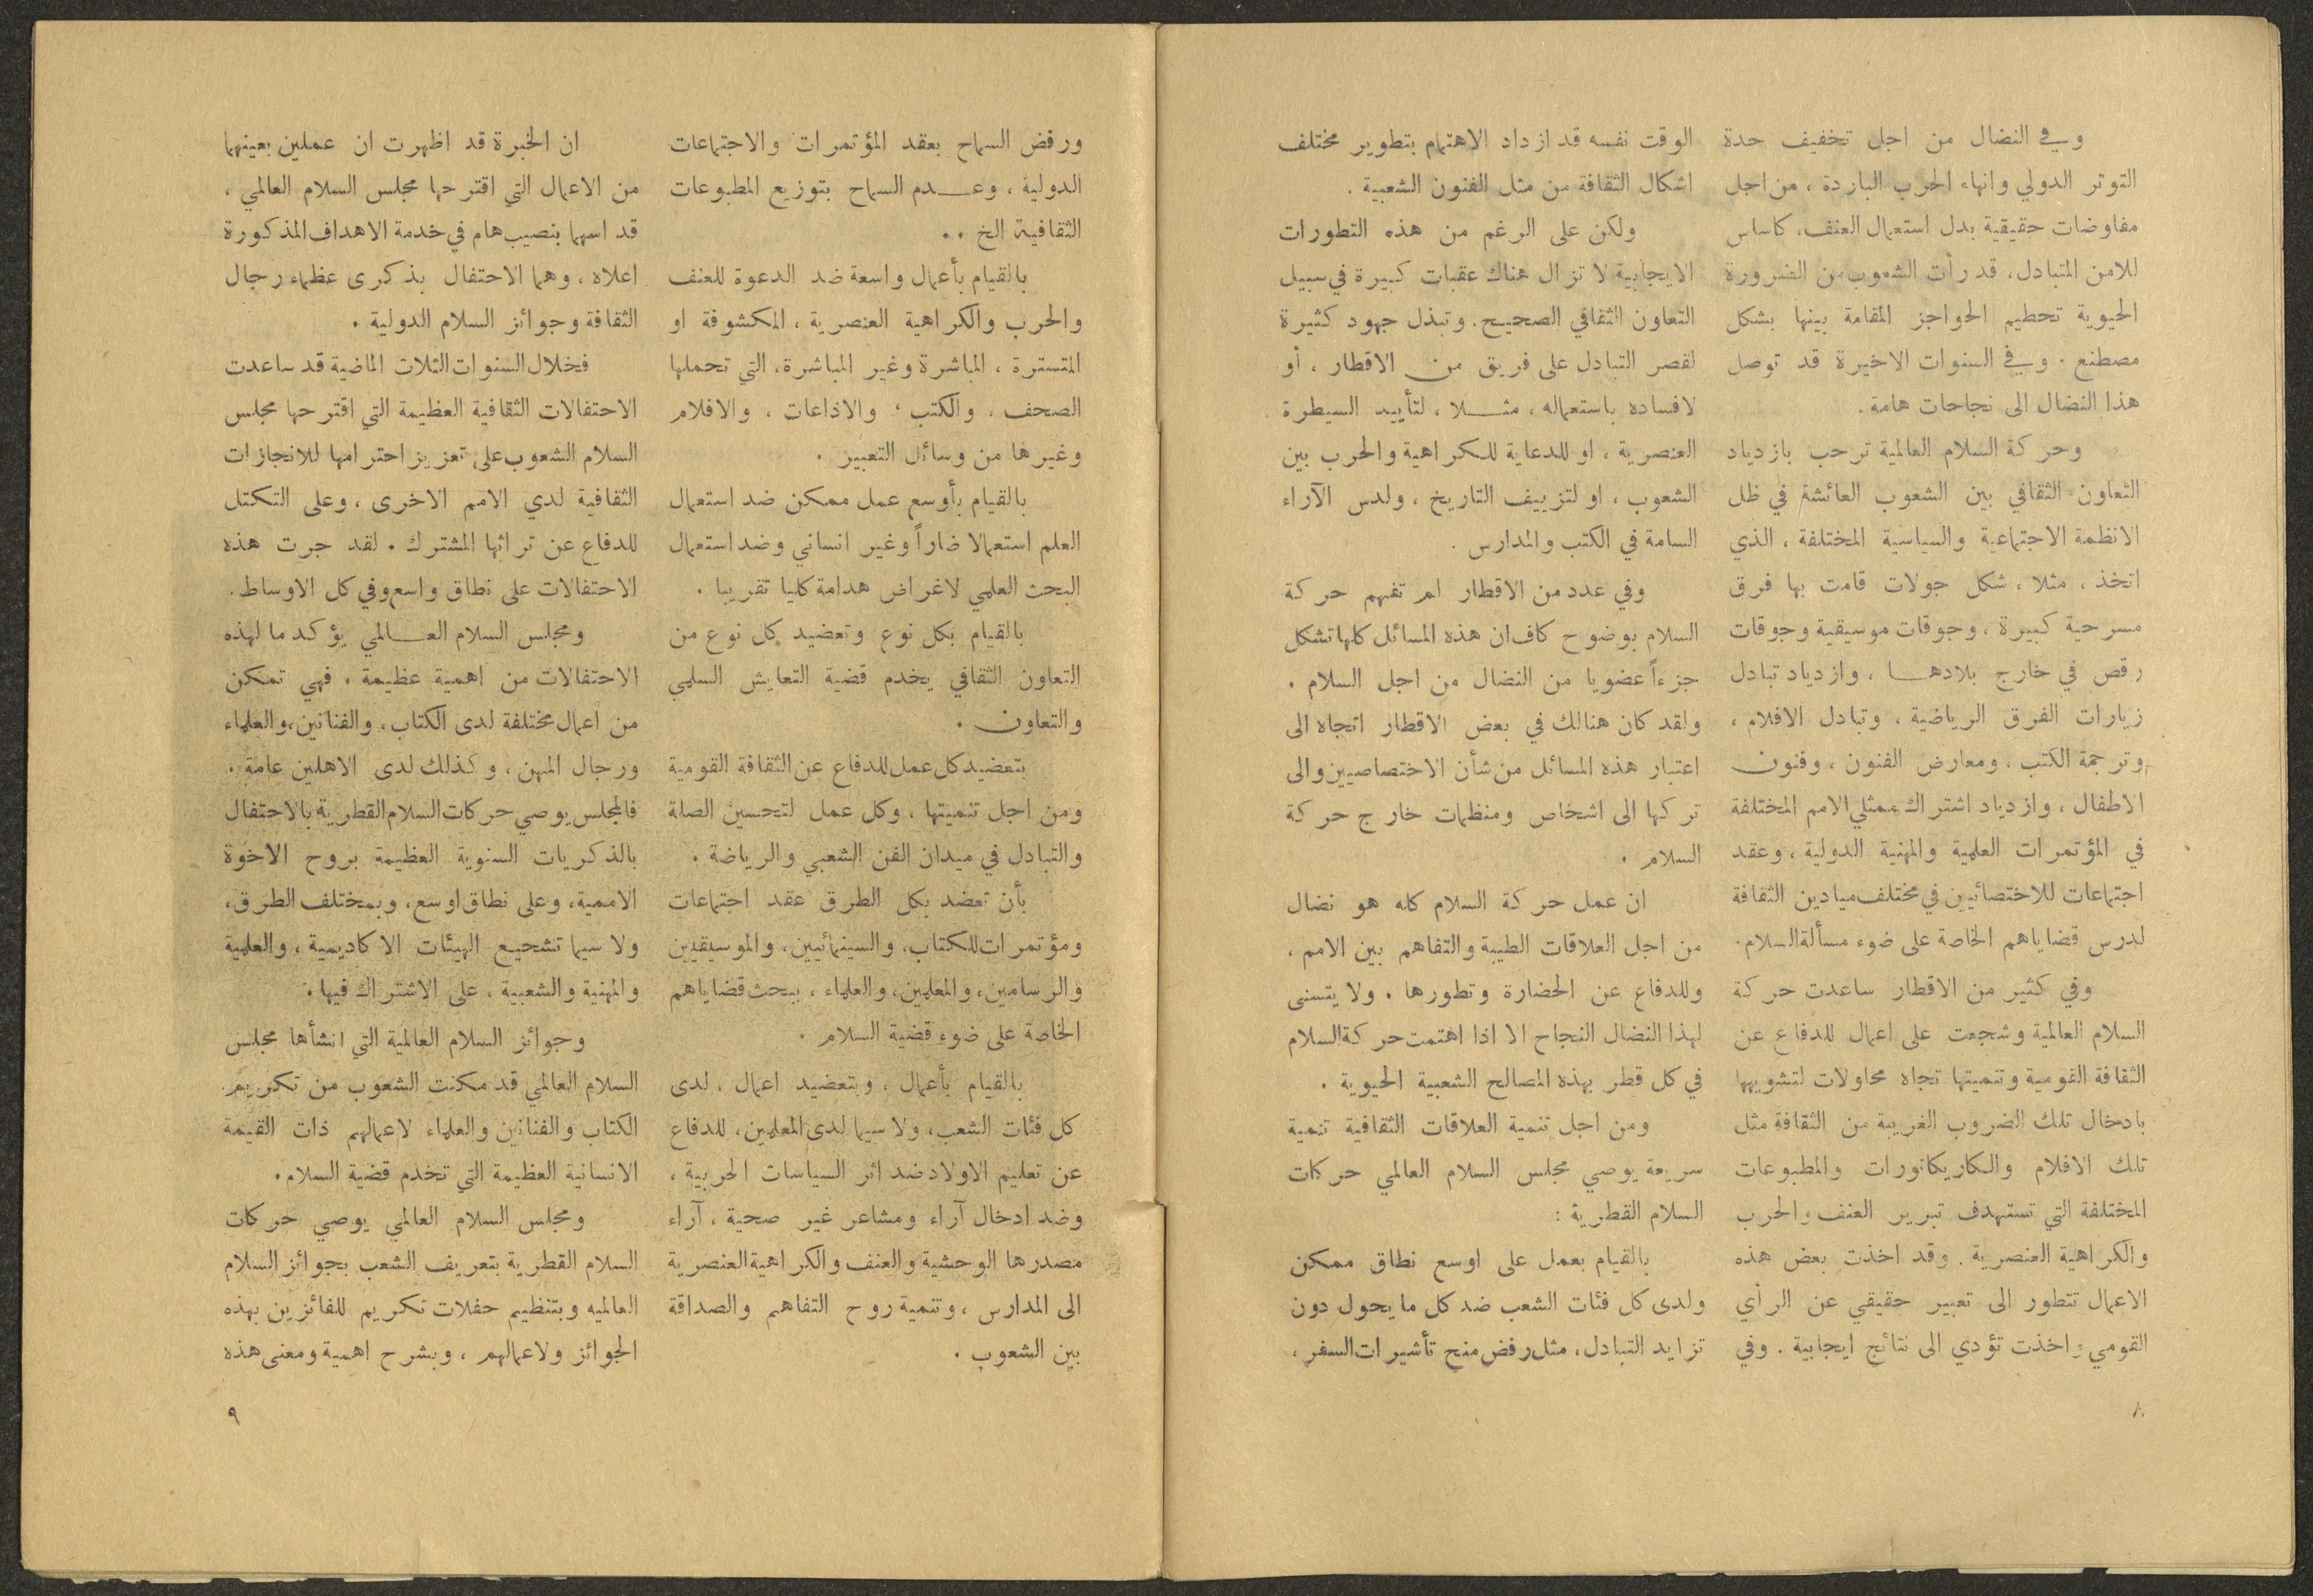 وفي النضال من اجل تخفيف حدة
التوتر الدولي وانهاء الحرب الباردة ، من اجل
مفاوضات حقيقية بدل استعمال العنف، كاساس
للامن المتبادل، قد رأت الشعوب من الضرورة
الحيوية تحطيم الحواجز المقامة بينها بشكل
مصطنع . وفي السنوات الاخيرة قد توصل
هذا النضال الى نجاحات هامة .
وحركة السلام العالمية ترحب بازدياد
التعاون الثقافي بين الشعوب العائشة في ظل
الانظمة الاجتماعية والسياسية المختلفة ، الذي
اتخذ ، مثلا ، شكل جولات قامت بها فرق
مسرحية كبيرة ، وجوقات موسيقية وجوقات
رقص في خارج بلادهـا ، وازدياد تبادل
زيارات الفرق الرياضية ، وتبادل الافلام ،
وترجمة الكتب ، ومعارض الفنون ، وفنون
الاطفال ، وازدياد اشتراك ممثلي الامم المختلفة
في المؤتمرات العلمية والمهنية الدولية ، وعقد
اجتماعات للاختصائيين في مختلف ميادين الثقافة
لدرس قضاياهم الخاصة على ضوء مسألة السلام.
وفي كثير من الاقطار ساعدت حركة
السلام العالمية وشجعت على اعمال للدفاع عن
الثقافة القومية وتنميتها تجاه محاولات لتشويهها
بادخال تلك الضروب الغريبة من الثقافة مثل
تلك الافلام والكاريكاتورات والمطبوعات
المختلفة التي تستهدف تبرير العنف والحرب
والكراهية العنصرية . وقد اخذت بعض هذه
الاعمال تتطور الى تعبير حقيقي عن الرأي
القومي واخذت تؤدي الى نتائج ايجابية . وفي
الوقت نفسه قد ازداد الاهتمام بتطوير مختلف
اشكال الثقافة من مثل الفنون الشعبية .
ولكن على الرغم من هذه التطورات
الايجابية لا تزال هناك عقبات كبيرة في سبيل
التعاون الثقافي الصحيح . وتبذل جهود كثيرة
لقصر التبادل على فريق من الاقطار ، أو
لافساده باستعماله ، مثـلا ، لتأييد السيطرة
العنصرية ، او للدعاية للكراهية والحرب بين
الشعوب ، او لتزييف التاريخ ، ولدس الآراء
السامة في الكتب والمدارس .
وفي عدد من الاقطار لم تفهم حركة
السلام بوضوح كاف ان هذه المسائل كلها تشكل
جزءاً عضويا من النضال من اجل السلام .
ولقد كان هنالك في بعض الاقطار اتجاه الى
اعتبار هذه المسائل من شأن الاختصاصيين والى
تركها الى اشخاص ومنظمات خارج حركة
السلام .
ان عمل حركة السلام كله هو نضال
من اجل العلاقات الطيبة والتفاهم بين الامم ،
وللدفاع عن الحضارة وتطورها . ولا يتسنى
لهذا النضال النجاح الا اذا اهتمت حركة السلام
في كل قطر بهذه المصالح الشعبية الحيوية .
ومن اجل تنمية العلاقات الثقافية تنمية
سريعة يوصي مجلس السلام العالمي حركات
السلام القطرية :
بالقيام بعمل على اوسع نطاق ممكن
ولدى كل فئات الشعب ضد كل ما يحول دون
تزايد التبادل، مثل رفض منح تأشيرات السفر ،
٨
ورفض السماح بعقد المؤتمرات والاجتماعات
الدولية ، وعـدم السماح بتوزيع المطبوعات
الثقافية الخ . .
بالقيام بأعمال واسعة ضد الدعوة للعنف
والحرب والكراهية العنصرية ، المكشوفة او
المتسترة ، المباشرة وغير المباشرة، التي تحملها
الصحف ، والكتب ، والاذاعات ، والافلام
وغيرها من وسائل التعبير .
بالقيام بأوسع عمل ممكن ضد استعمال
العلم استعمالا ضاراً وغير انساني وضد استعمال
البحث العلمي لاغراض هدامة كليا تقريبا .
بالقيام بكل نوع وتعضيد كل نوع من
التعاون الثقافي يخدم قضية التعايش السلمي
والتعاون .
بتعضيد كل عمل للدفاع عن الثقافة القومية
ومن اجل تنميتها ، وكل عمل لتحسين الصلة
والتبادل في ميدان الفن الشعبي والرياضة .
بأن تعضد بكل الطرق عقد اجتماعات
ومؤتمرات للكتاب، والسينمائيين، والموسيقيين
والرسامين، والمعلمين، والعلماء ، ببحث قضاياهم
الخاصة على ضوء قضية السلام .
بالقيام بأعمال ، وبتعضيد اعمال ، لدى
كل فئات الشعب، ولا سيما لدى المعلمين، للدفاع
عن تعليم الاولاد ضد اثر السياسات الحربية ،
وضد ادخال آراء ومشاعر غير صحية ، آراء
مصدرها الوحشية والعنف والكراهية العنصرية
الى المدارس ، وتنمية روح التفاهم والصداقة
بين الشعوب .
ان الخبرة قد اظهرت ان عملين بعينهما
من الاعمال التي اقترحها مجلس السلام العالمي ،
قد اسهما بنصيب هام في خدمة الاهداف المذكورة
اعلاه ، وهما الاحتفال بذكرى عظماء رجال
الثقافة وجوائز السلام الدولية .
فخلال السنوات الثلاث الماضية قد ساعدت
الاحتفالات الثقافية العظيمة التي اقترحها مجلس
السلام الشعوب على تعزيز احترامها للانجازات
الثقافية لدي الامم الاخرى ، وعلى التكتل
للدفاع عن تراثها المشترك . لقد جرت هذه
الاحتفالات على نطاق واسع وفي كل الاوساط.
ومجلس السلام العـالمي يؤكد ما لهذه
الاحتفالات من اهمية عظيمة . فهي تمكن
من اعمال مختلفة لدى الكتاب، والفنانين، والعلماء
ورجال المهن ، وكذلك لدى الاهلين عامة .
فالمجلس يوصي حركات السلام القطرية بالاحتفال
بالذكريات السنوية العظيمة بروح الاخوة
الاممية، وعلى نطاق اوسع، وبمختلف الطرق،
ولا سيما تشجيع الهيئات الاكاديمية ، والعلمية
والمهنية والشعبية ، على الاشتراك فيها .
وجوائز السلام العالمية التي انشأها مجلس
السلام العالمي قد مكنت الشعوب من تكريم
الكتاب والفنانين والعلماء لاعمالهم ذات القيمة
الانسانية العظيمة التي تخدم قضية السلام .
ومجلس السلام العالمي يوصي حركات
السلام القطرية بتعريف الشعب بجوائز السلام
العالميه وبتنظيم حفلات تكريم للفائزين بهذه
الجوائز ولاعمالهم ، وبشرح اهمية ومعنى هذه
٩